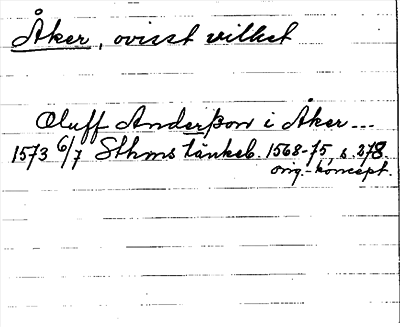 Åker, ovisst vilket
Oluff Anderßon i Åker...
1573 6/7 Sthms tänkeb. 1568-75, s. 278.
orig.-koncept.